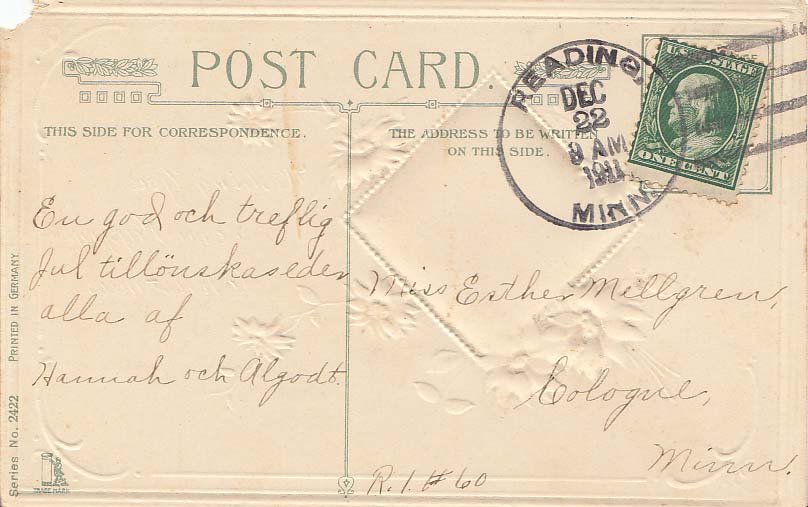 POST CARD.
THIS SIDE FOR CORRESPONDENCE.
THE ADDRESS TO BE WRITTEN
ON THIS SIDE.
READING,
DEC
22
9 AM
1911
MINN.
U.S. POSTAGE
ONE CENT
En god och treflig
Jul tillönskas eder
alla af
Hannah och Algodt.
Miss Esther Mellgren,
Cologne,
Minn.
R. 1. # 60
Series No. 2422 PRINTED IN GERMANY
TRADE MARK